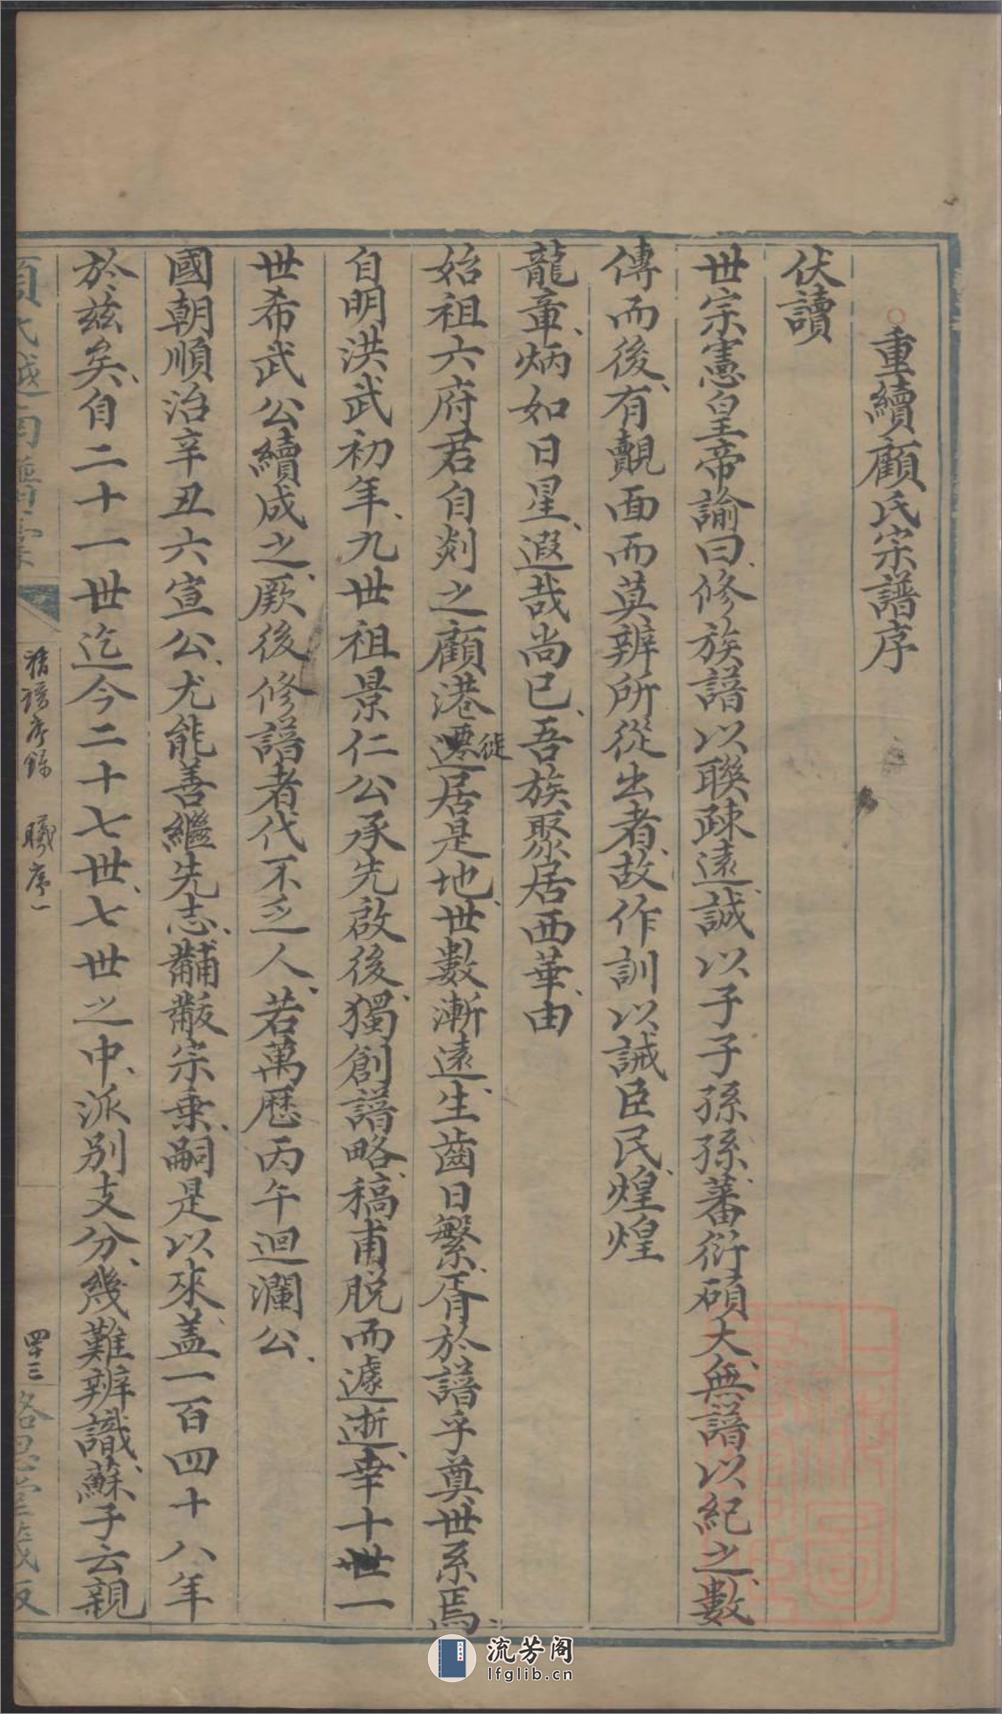 重續顧氏宗譜序
伏讀
世宗憲皇帝諭曰修族譜以聯疎遠誠以子子孫孫蕃衍碩大無譜以紀之數
傳而後有覿面而莫辨所從出者故作訓以誡臣民煌煌
龍章炳如日星遐哉尚已吾族聚居西華由
始祖六府君自剡之顧港遷徙居是地世數漸遠生齒日繁胥於譜乎奠世系焉
自明洪武初年九世祖景仁公承先啟後獨創譜略稿甫脫而遽逝幸十世一
世希武公續成之厥後修譜者代不乏人若萬歷丙午迴瀾公
國朝順治辛丑六宣公尤能善繼先志黼黻宗乘嗣是以來盖一百四十八年
於茲矣自二十一世迄今二十七世七世之中派別支分幾難辨識蘇子云親
舊譜序錄 曦序一
四十三
流芳阁
lfglib.cn